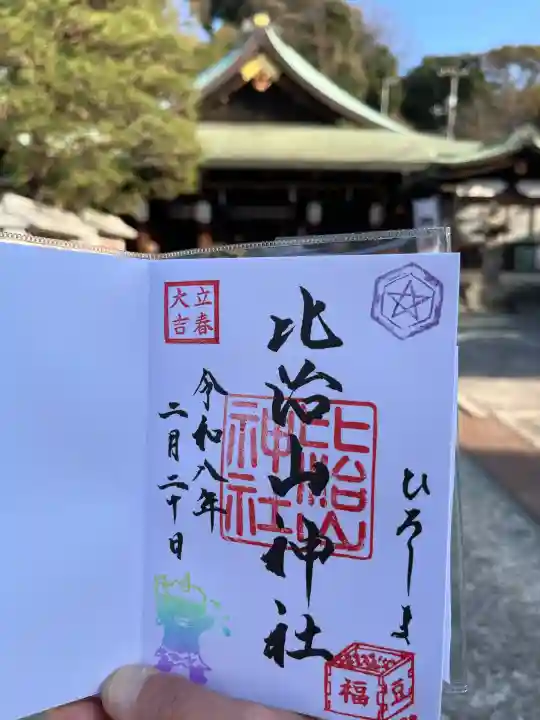 ひろしま
比治山神社
比治山
神社
立春
大吉
令和八年
二月二十日
福豆